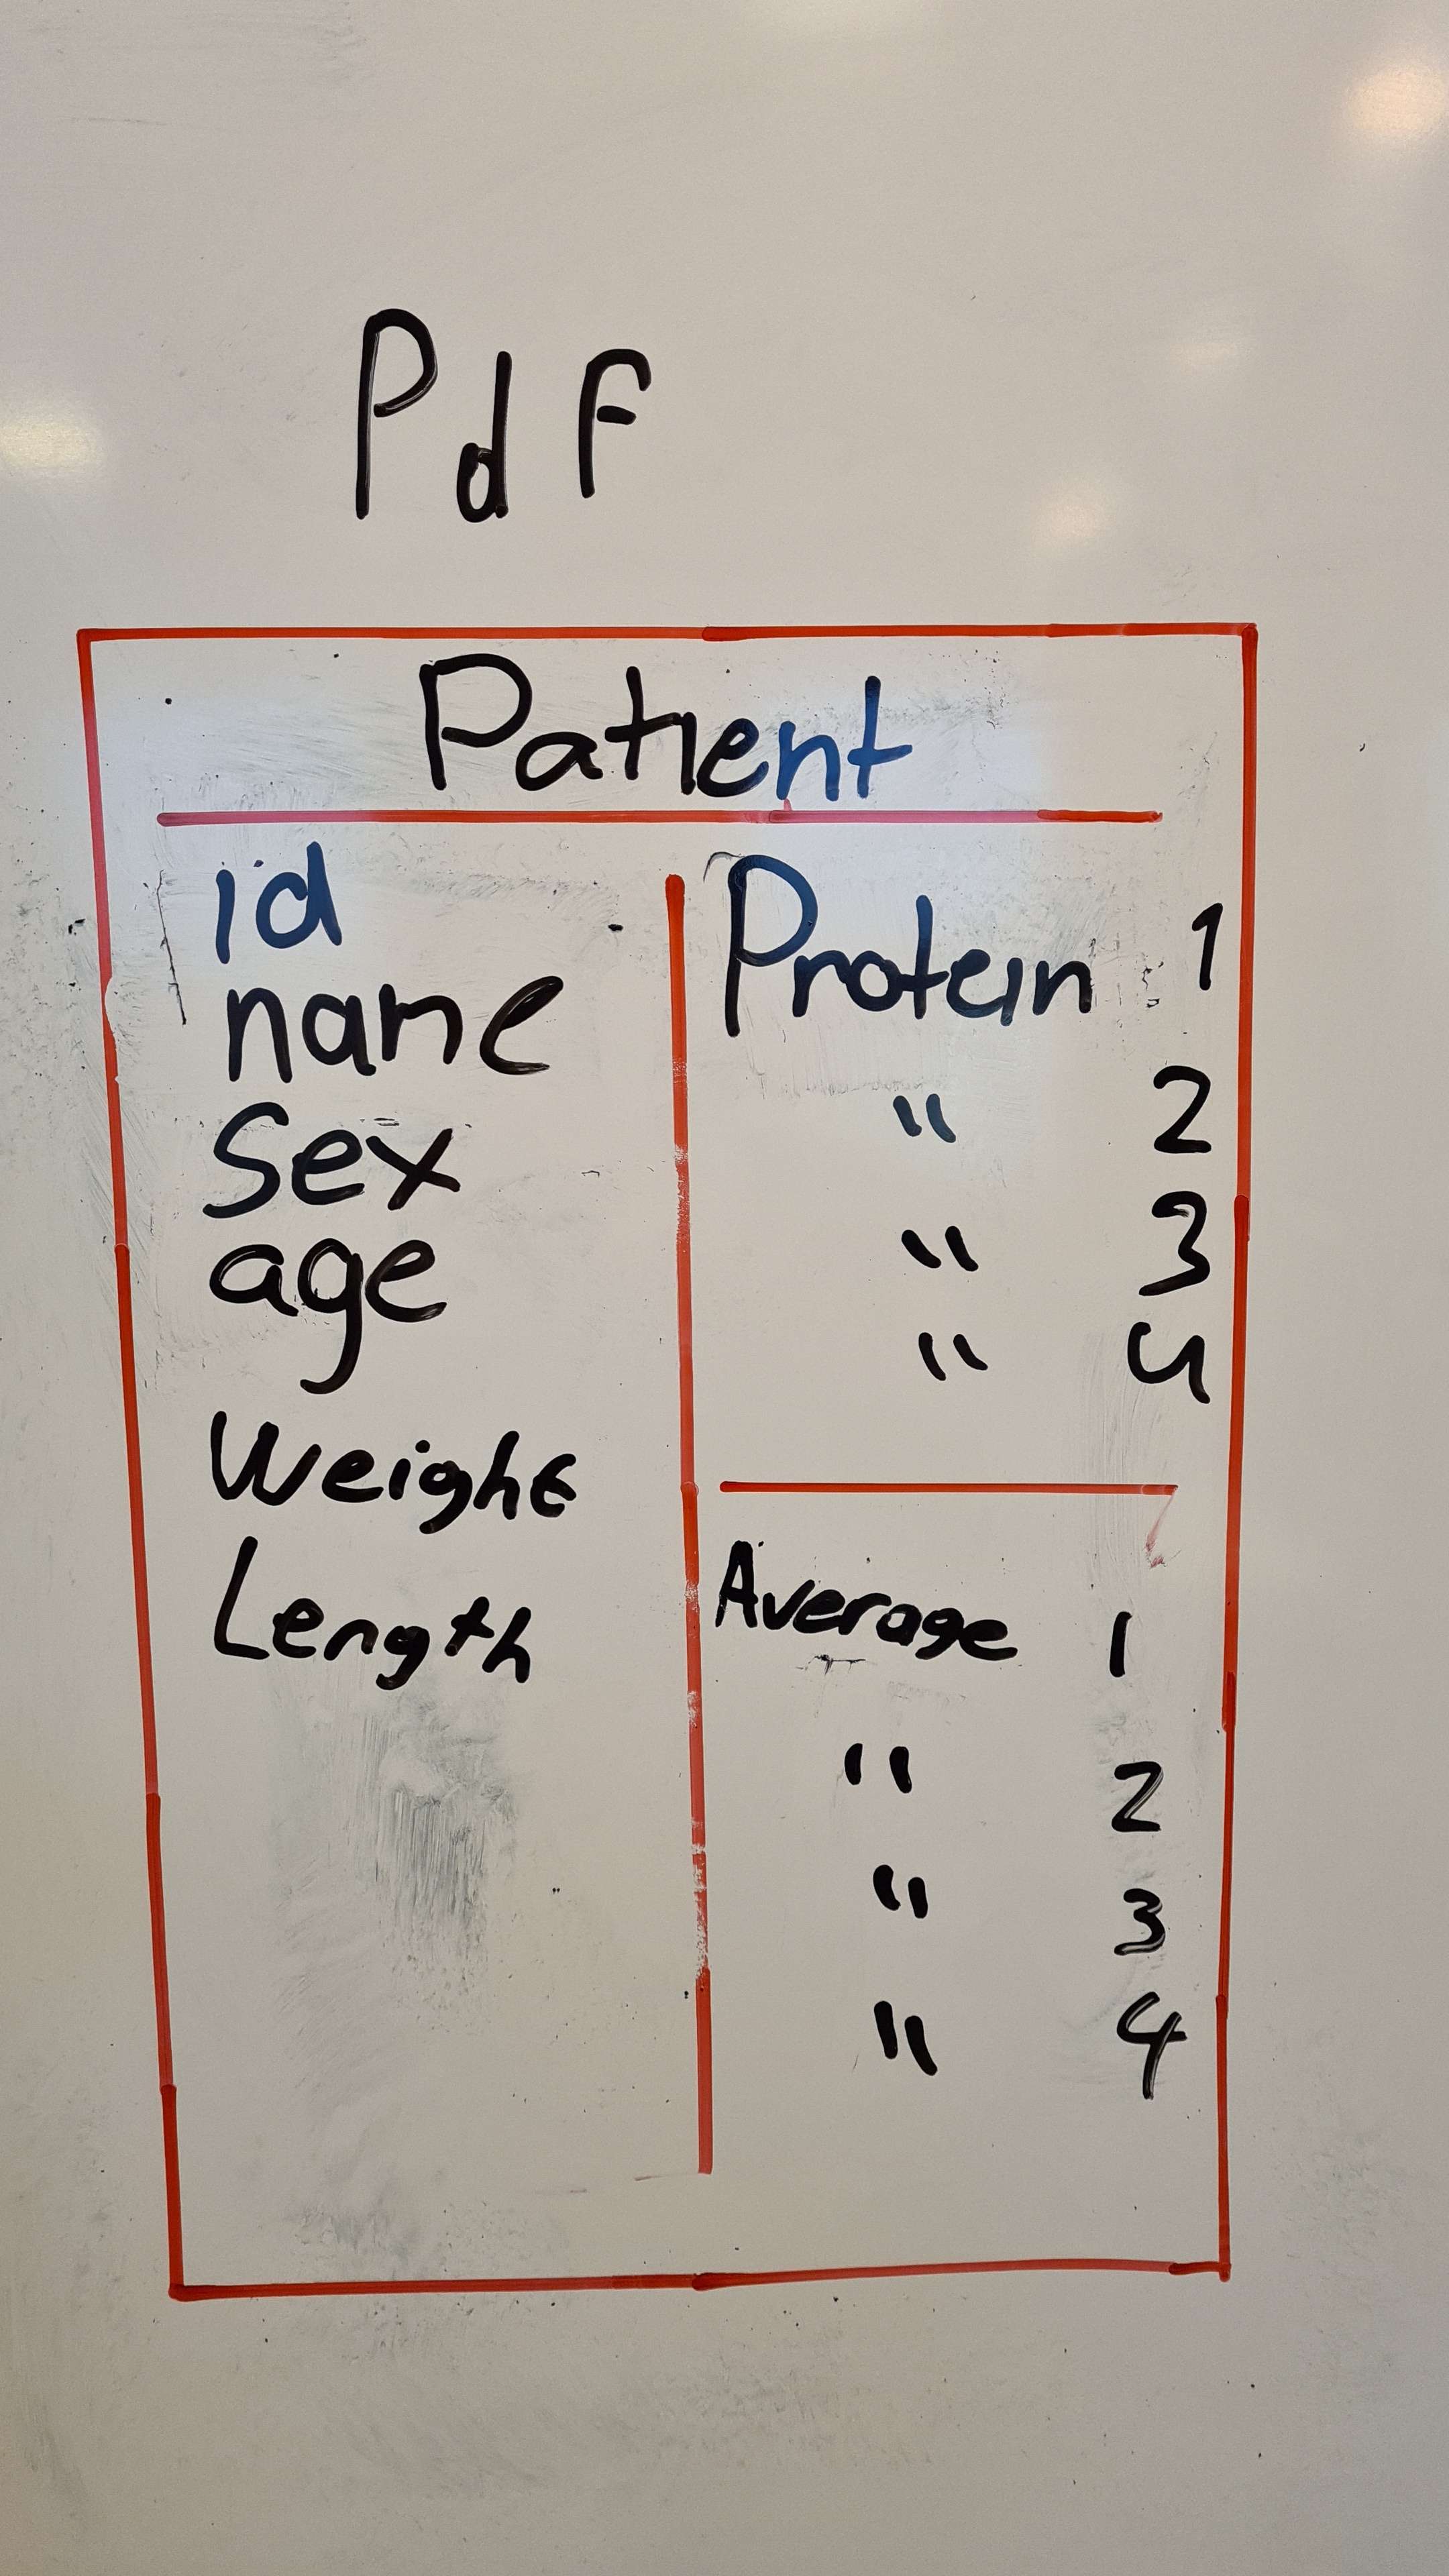 Pdf
Patient
id
name
Sex
age
Weight
Length
Protein 1
" 2
" 3
" 4
Average 1
" 2
" 3
" 4